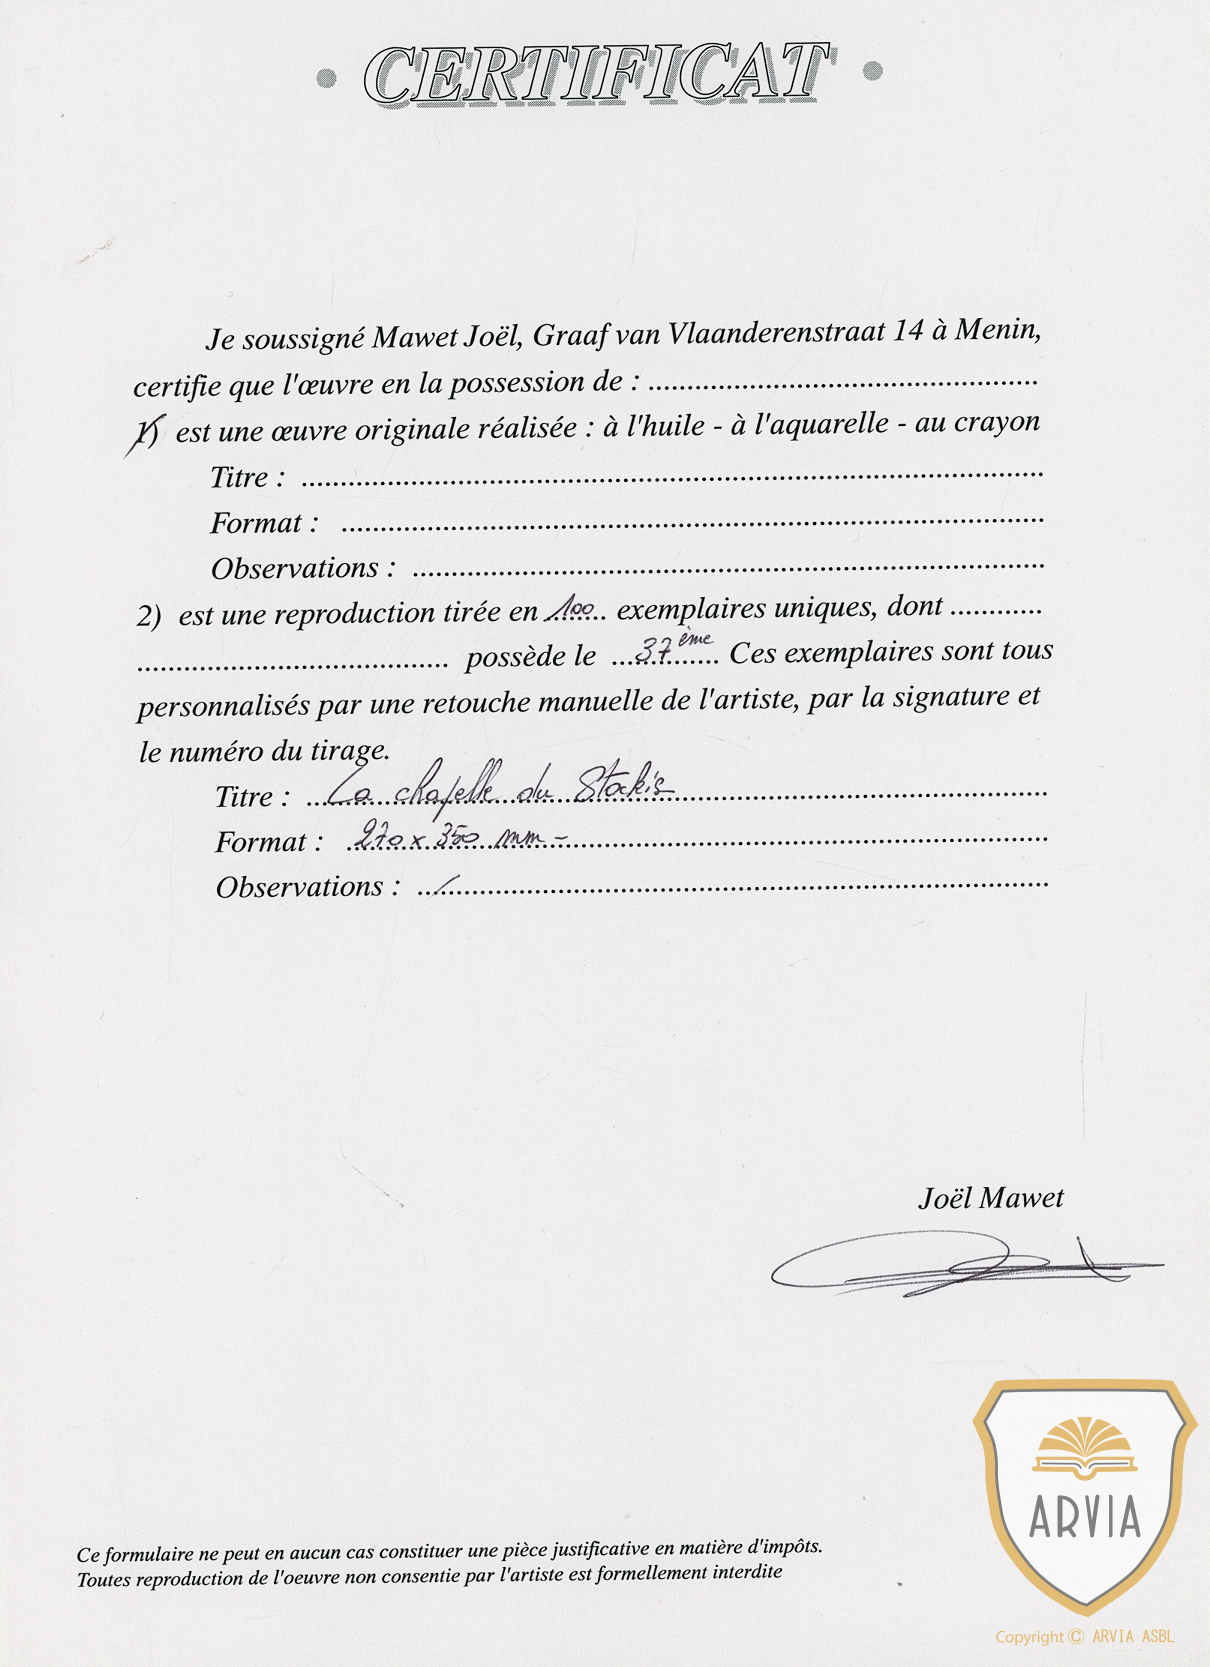 • CERTIFICAT •
Je soussigné Mawet Joël, Graaf van Vlaanderenstraat 14 à Menin,
certifie que l'œuvre en la possession de : ..................................................
1) est une œuvre originale réalisée : à l'huile - à l'aquarelle - au crayon
Titre : ..................................................
Format : ..................................................
Observations : ..................................................
2) est une reproduction tirée en 100 exemplaires uniques, dont ............
........................................ possède le 37ème Ces exemplaires sont tous
personnalisés par une retouche manuelle de l'artiste, par la signature et
le numéro du tirage.
Titre : La chapelle du Stockis
Format : 270 x 350 mm -
Observations : /
Joël Mawet
Ce formulaire ne peut en aucun cas constituer une pièce justificative en matière d'impôts.
Toutes reproduction de l'oeuvre non consentie par l'artiste est formellement interdite
ARVIA
Copyright © ARVIA ASBL